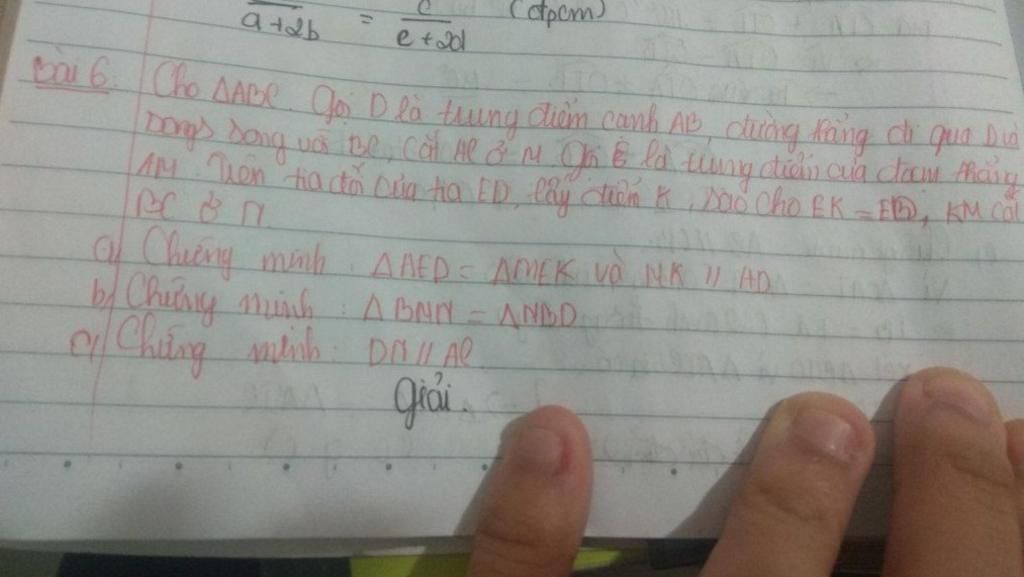 a+2b = c/c+2d (đpcm)
Bài 6: Cho ΔABC. Gọi D là trung điểm cạnh AB, đường thẳng đi qua D và
song song với BC, cắt AC ở M. Gọi E là trung điểm của đoạn thẳng
AM. Trên tia đối của tia ED, lấy điểm K, sao cho EK = ED, KM cắt
BC ở N.
a) Chứng minh: ΔAED = ΔMEK và MK // AD
b) Chứng minh: ΔBNM = ΔNBD
c) Chứng minh: DN // AC
Giải.